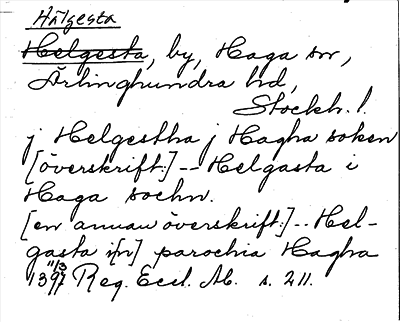 Hälgesta
Helgesta, by, Haga sn,
Ärlinghundra hd,
Stockh. l.
j Helgestha j Hagha soken
[överskrift:] -- Helgasta i
Haga sochn.
[en annan överskrift:] -- Hel-
gasta i[n] parochia Hagha
11/3
1397 Reg. Eccl. Ab. s. 211.